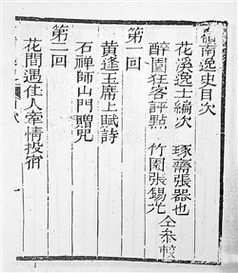 嶺南逸史目次
花溪逸士編次　琢齋張器也
醉園狂客評點　竹園張錫光　仝參校
第一回
黃逢玉席上賦詩
石禪師山門贈咒
第二回
花間遇佳人牽情投宿